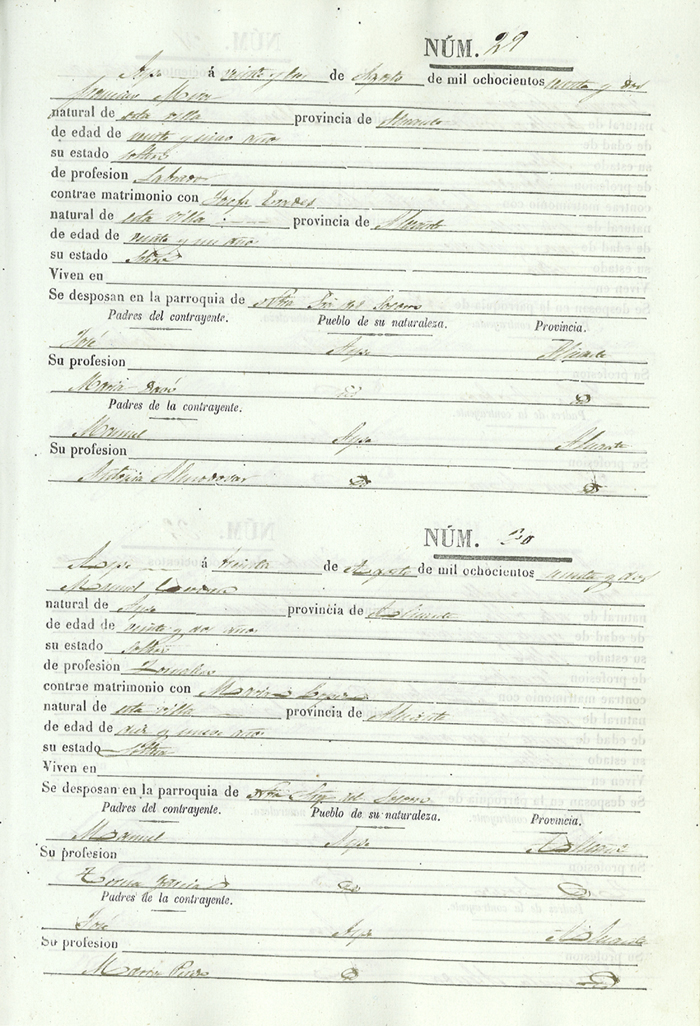 NÚM. 29
Aspe á veinte y de Agosto de mil ochocientos y dos
Mira
natural de esta villa provincia de Alicante
de edad de veinte y cinco años
su estado soltero
de profesion Labrador
contrae matrimonio con Josefa
natural de esta villa provincia de Alicante
de edad de veinte y un años
su estado
Viven en
Se desposan en la parroquia de Ntra Sra del Socorro
Padres del contrayente. Pueblo de su naturaleza. Provincia.
José Aspe Alicante
Su profesion
Maria
Padres de la contrayente.
Manuel Aspe Alicante
Su profesion
Antonia Almodovar
NÚM. 30
Aspe á treinta de Agosto de mil ochocientos y dos
Manuel
natural de Aspe provincia de Alicante
de edad de veinte y dos años
su estado soltero
de profesion
contrae matrimonio con Maria
natural de esta villa provincia de Alicante
de edad de diez y nueve años
su estado soltera
Viven en
Se desposan en la parroquia de Ntra Sra del Socorro
Padres del contrayente. Pueblo de su naturaleza. Provincia.
Manuel Aspe Alicante
Su profesion
Garcia
Padres de la contrayente.
José Aspe Alicante
Su profesion
Maria